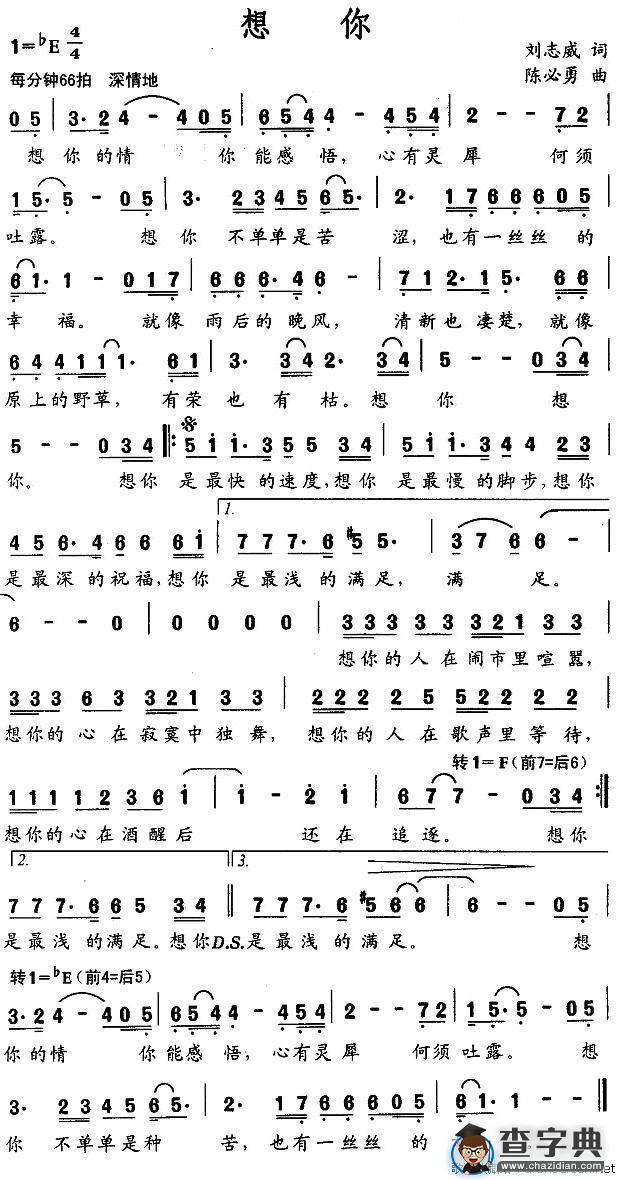 想 你
1=♭E 4/4
刘志威 词
每分钟66拍 深情地
陈必勇 曲
0 5 | 3· 2 4 - 4 0 5 | 6 5 4 4 - 4 5 4 | 2 - - 7 2 |
想 你 的 情 你 能 感 悟, 心 有 灵 犀 何 须
1 5· 5 - 0 5 | 3· 2 3 4 5 6 5· | 2· 1 7 6 6 6 0 5 |
吐 露。 想 你 不 单 单 是 苦 涩, 也 有 一 丝 丝 的
6 1· 1 - 0 1 7 | 6 6 6· 4 6 - | 7 1 2· 1 5· 6 6 |
幸 福。 就 像 雨 后 的 晚 风, 清 新 也 凄 楚, 就 像
6 4 4 1 1 1· 6 1 | 3· 3 4 2· 3 4 | 5 - - 0 3 4 |
原 上 的 野 草, 有 荣 也 有 枯。 想 你 想
5 - - 0 3 4 ‖: 5 i i· 3 5 5 3 4 | 5 i i· 3 4 4 2 3 |
你。 想 你 是 最 快 的 速 度, 想 你 是 最 慢 的 脚 步, 想 你
1.
4 5 6· 4 6 6 6 i | 7 7 7· 6 #5 5· | 3 7 6 6 - |
是 最 深 的 祝 福, 想 你 是 最 浅 的 满 足, 满 足。
6 - - 0 | 0 0 0 0 | 3 3 3 3 3 3 3 2 1 3 3 |
想 你 的 人 在 闹 市 里 喧 嚣,
3 3 3 6 3 3 2 1 3 3 | 2 2 2 2 5 5 2 2 2 2 |
想 你 的 心 在 寂 寞 中 独 舞, 想 你 的 人 在 歌 声 里 等 待,
转1=F(前7=后6)
1 1 1 1 2 3 6 i | i - 2 i | 6 7 7 - 0 3 4 :‖
想 你 的 心 在 酒 醒 后 还 在 追 逐。 想 你
2. 3.
7 7 7· 6 6 5 3 4 ‖ 7 7 7· 6 #5 6 6 | 6 - - 0 5 |
是 最 浅 的 满 足。 想 你 D.S. 是 最 浅 的 满 足。 想
转1=♭E(前4=后5)
3· 2 4 - 4 0 5 | 6 5 4 4 - 4 5 4 | 2 - - 7 2 | 1 5· 5 - 0 5 |
你 的 情 你 能 感 悟, 心 有 灵 犀 何 须 吐 露。 想
3· 2 3 4 5 6 5· | 2· 1 7 6 6 6 0 5 | 6 1· 1 - - ‖
你 不 单 单 是 种 苦, 也 有 一 丝 丝 的
查字典
www.chazidian.com